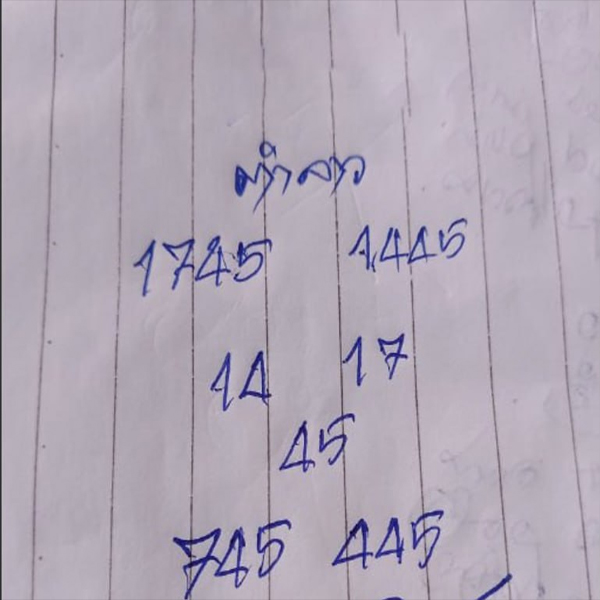 ทำลาว
1745 1445
14 17
45
745 445